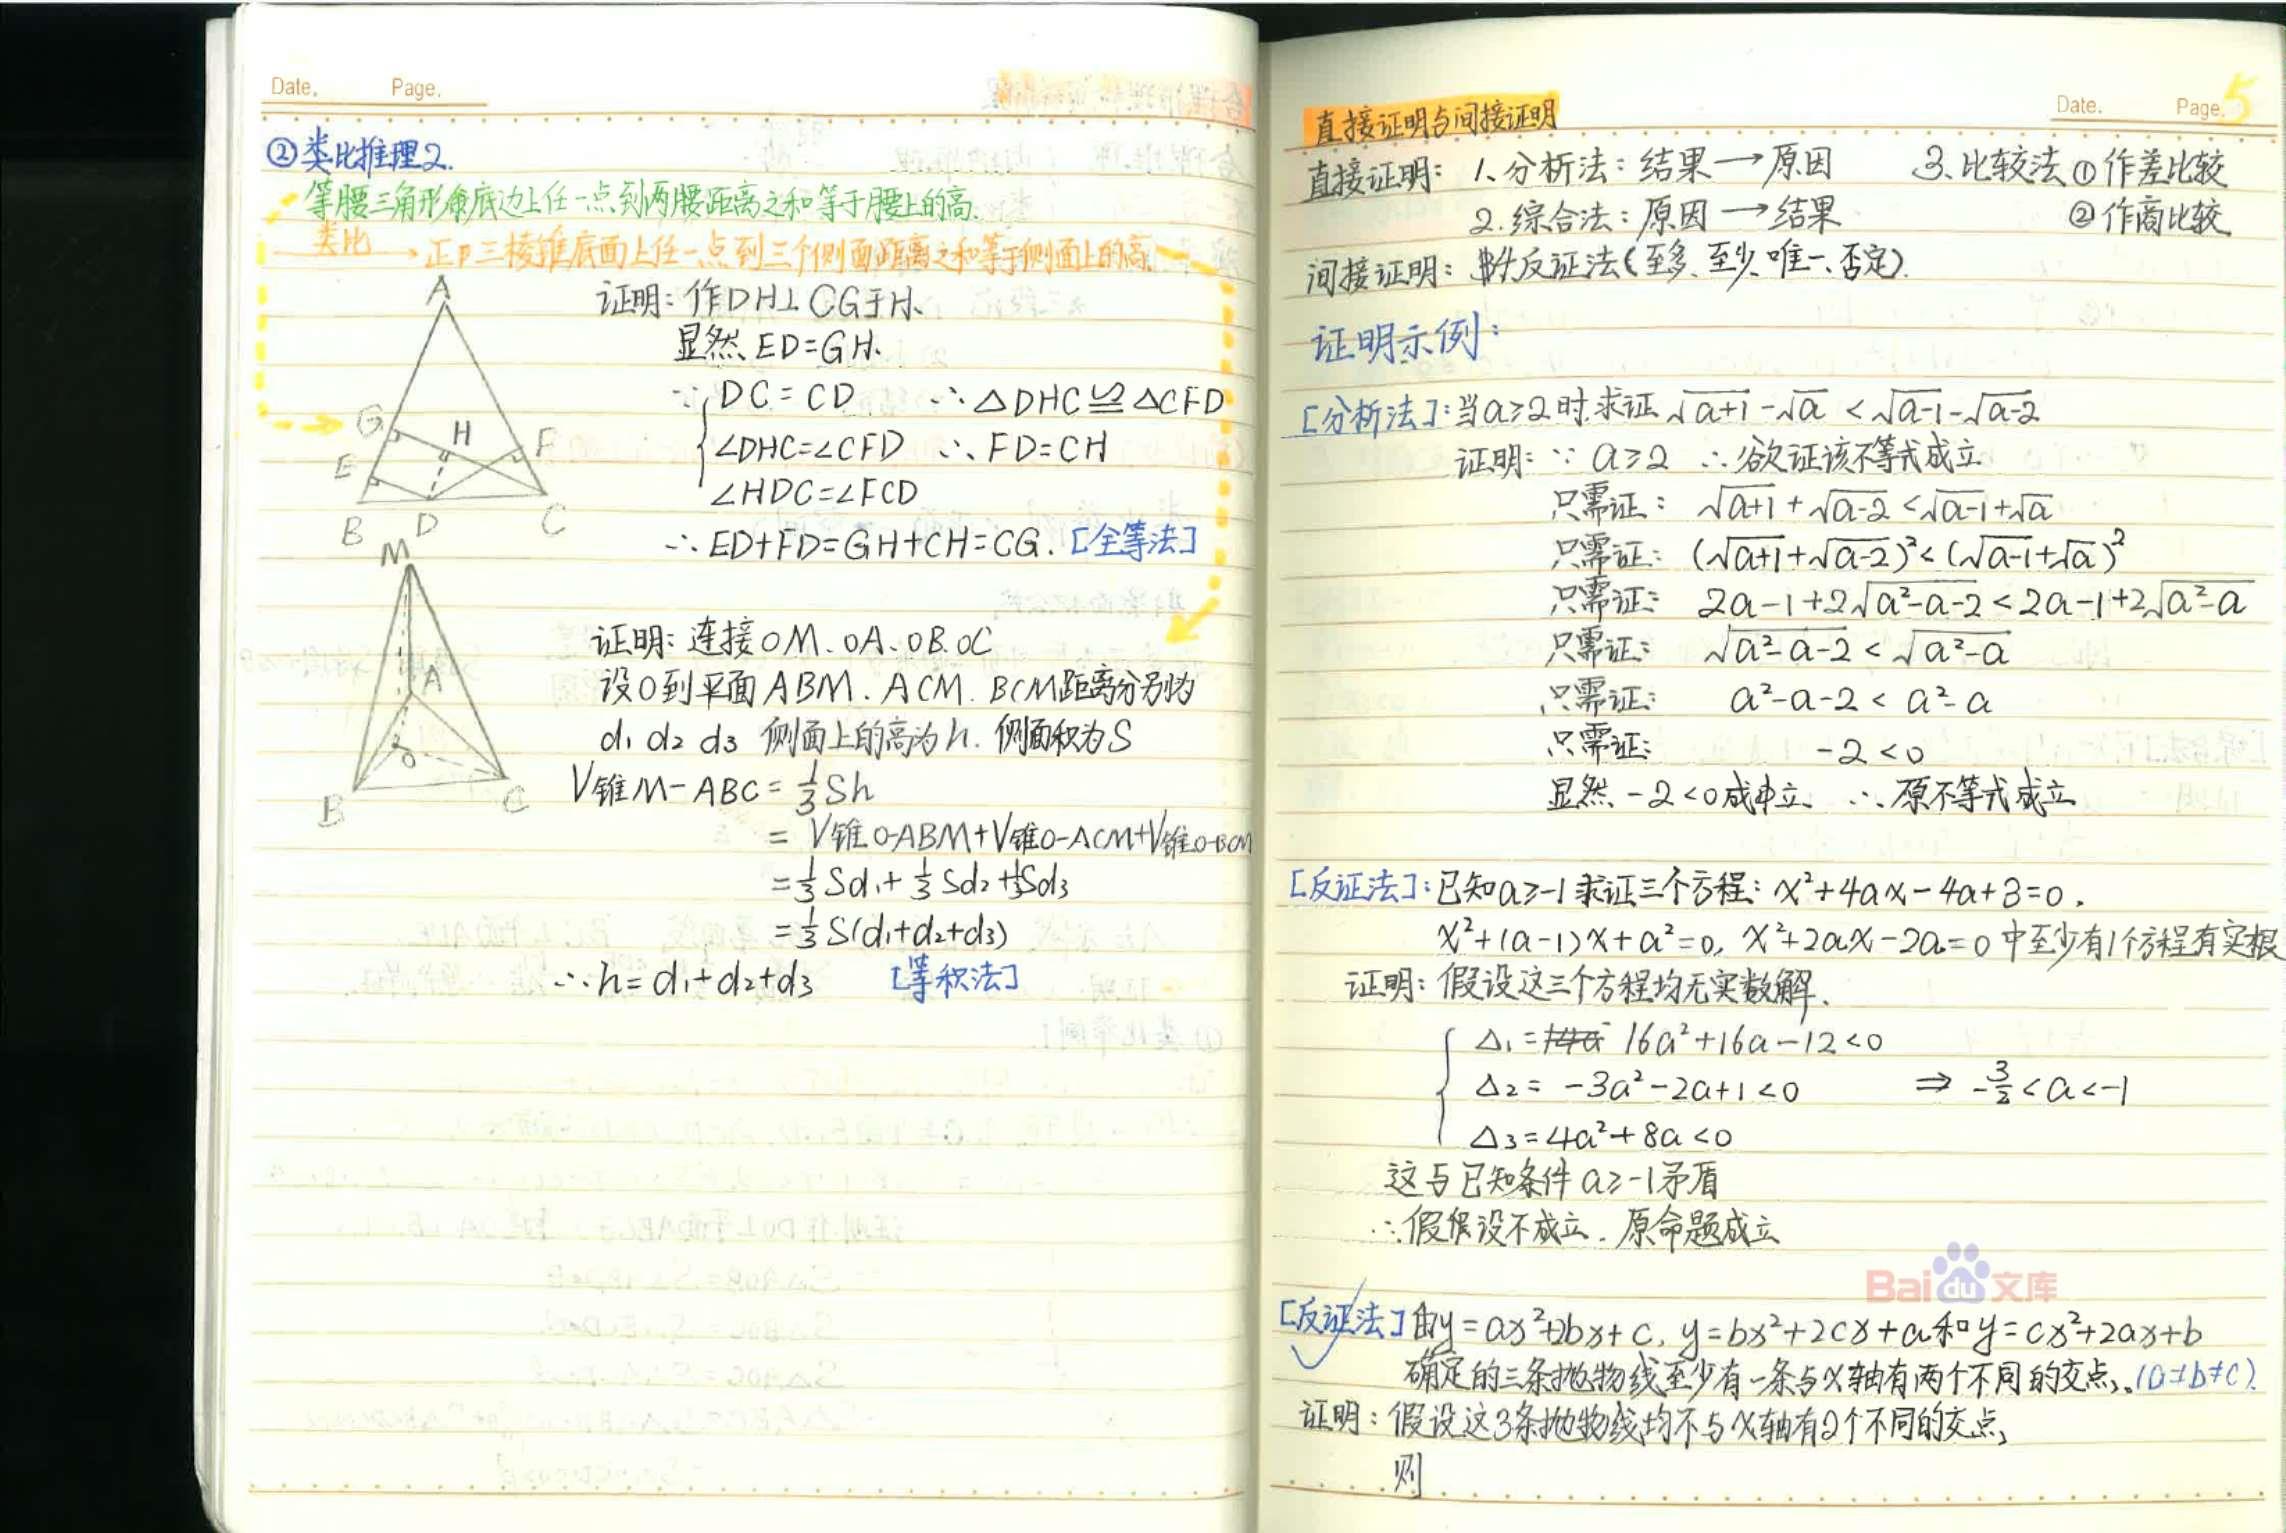 Date. Page.
②类比推理2.
等腰三角形底边上任一点到两腰距离之和等于腰上的高.
类比 → 正三棱锥底面上任一点到三个侧面距离之和等于侧面上的高.
A
G H F
E
B D C
证明: 作DH⊥CG于H.
显然ED=GH.
∵ DC=CD ∴△DHC≌△CFD
∠DHC=∠CFD ∴FD=CH
∠HDC=∠FCD
∴ED+FD=GH+CH=CG. [全等法]
M
A
O
B C
证明: 连接OM、OA、OB、OC
设O到平面ABM、ACM、BCM距离分别为
d₁ d₂ d₃ 侧面上的高为h. 侧面积为S
V锥M-ABC=⅓Sh
=V锥O-ABM+V锥O-ACM+V锥O-BCM
=⅓Sd₁+⅓Sd₂+⅓Sd₃
=⅓S(d₁+d₂+d₃)
∴h=d₁+d₂+d₃ [等积法]
Date. Page. 5
直接证明与间接证明
直接证明: 1、分析法: 结果→原因 3、比较法 ①作差比较
2.综合法: 原因→结果 ②作商比较
间接证明: 反证法(至多、至少、唯一、否定).
证明示例:
[分析法]: 当a≥2时.求证√(a+1)-√a<√(a-1)-√(a-2)
证明: ∵a≥2 ∴欲证该不等式成立
只需证: √(a+1)+√(a-2)<√(a-1)+√a
只需证: (√(a+1)+√(a-2))²<(√(a-1)+√a)²
只需证: 2a-1+2√(a²-a-2)<2a-1+2√(a²-a)
只需证: √(a²-a-2)<√(a²-a)
只需证: a²-a-2<a²-a
只需证: -2<0
显然-2<0成立. ∴原不等式成立
[反证法]: 已知a≥-1求证三个方程: x²+4ax-4a+3=0,
x²+(a-1)x+a²=0, x²+2ax-2a=0中至少有1个方程有实根
证明: 假设这三个方程均无实数解.
△₁=16a²+16a-12<0
△₂=-3a²-2a+1<0 ⇒ -3/2<a<-1
△₃=4a²+8a<0
这与已知条件a≥-1矛盾
∴假设不成立. 原命题成立
Baidu文库
[反证法] 由y=ax²+2bx+c, y=bx²+2cx+a和y=cx²+2ax+b
确定的三条抛物线至少有一条与x轴有两个不同的交点. (a≠b≠c).
证明: 假设这3条抛物线均不与x轴有2个不同的交点,
则